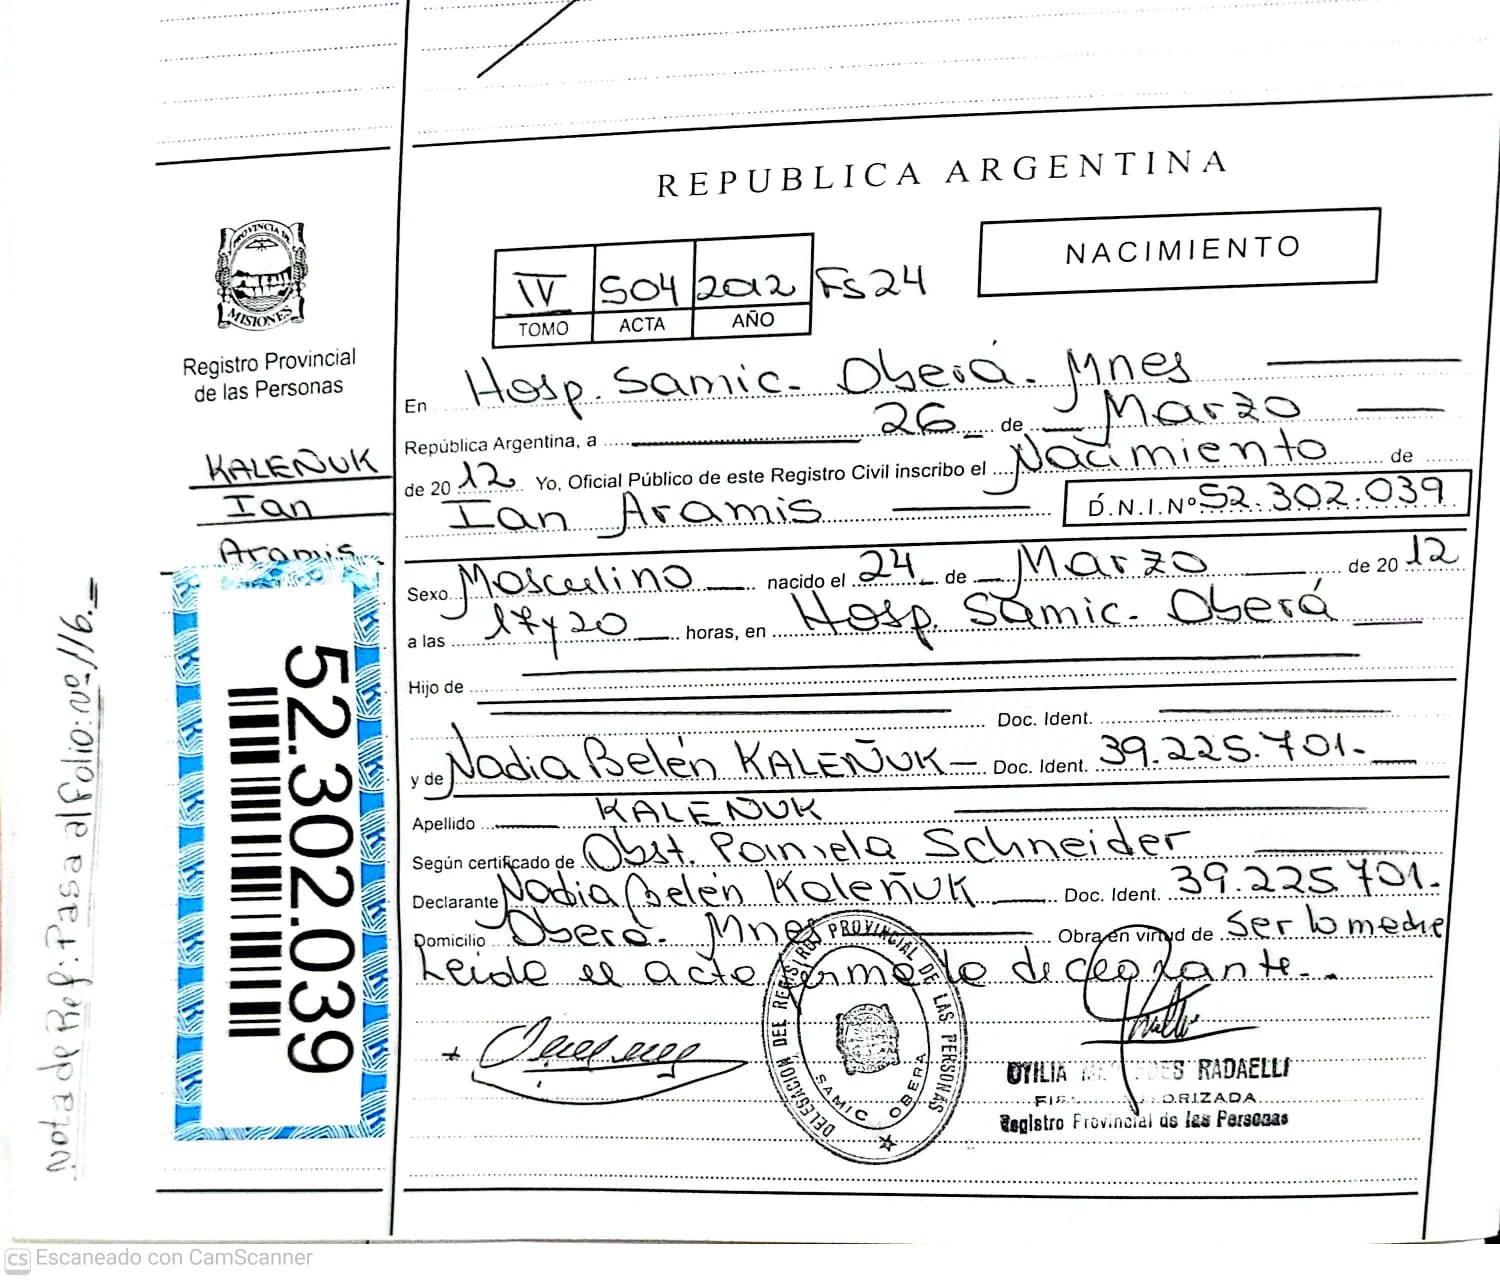 REPUBLICA ARGENTINA
NACIMIENTO
IV 504 2012 Fs 24
TOMO ACTA AÑO
PROVINCIA DE
MISIONES
Registro Provincial
de las Personas
KALEÑUK
Ian
Aramis
52.302.039
Nota de Ref: Pasa al folio: Nº 116.
En Hosp. Samic. Oberá. Mnes
República Argentina, a 26 de Marzo
de 2012 Yo, Oficial Público de este Registro Civil inscribo el Nacimiento de
Ian Aramis D.N.I.Nº 52.302.039
Sexo Masculino nacido el 24 de Marzo de 2012
a las 17y20 horas, en Hosp. Samic. Oberá
Hijo de
Doc. Ident.
y de Nadia Belén KALEÑUK Doc. Ident. 39.225.701.
Apellido KALEÑUK
Según certificado de Obst. Pamela Schneider
Declarante Nadia Belén Kaleñuk Doc. Ident. 39.225.701.
Domicilio Oberá. Mnes Obra en virtud de Ser la madre
Leida el acta firma la declarante.
DELEGACION DEL REGISTRO PROVINCIAL DE LAS PERSONAS
SAMIC OBERA
OTILIA RADAELLI
Registro Provincial de las Personas
CS Escaneado con CamScanner